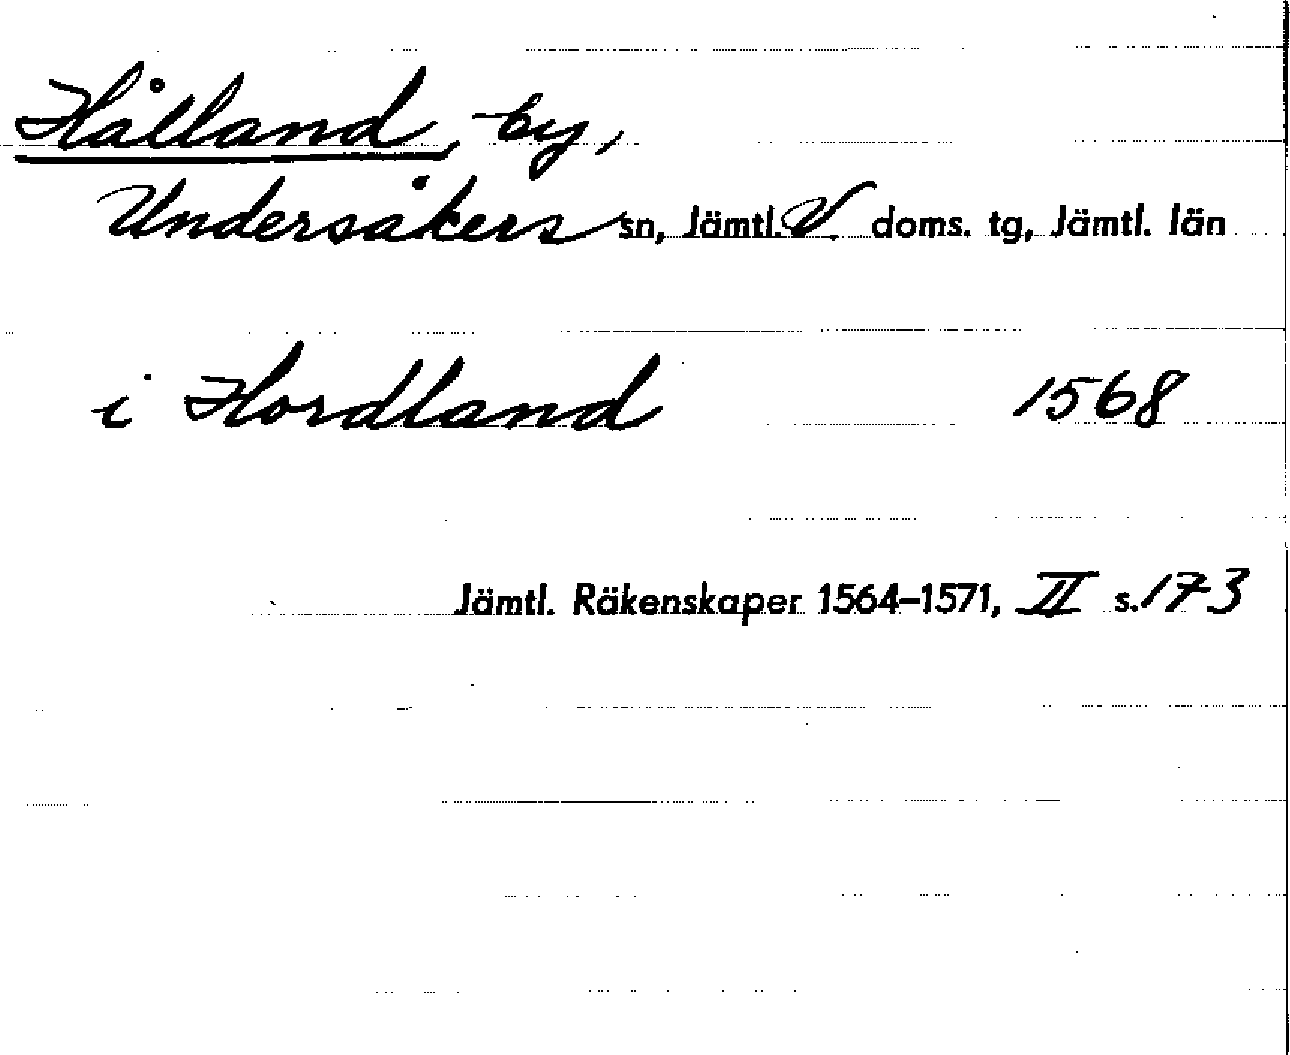 Hålland, by,
Undersåkers sn, Jämtl. V. doms. tg, Jämtl. län
i Hordland 1568
Jämtl. Räkenskaper 1564–1571, II s. 173